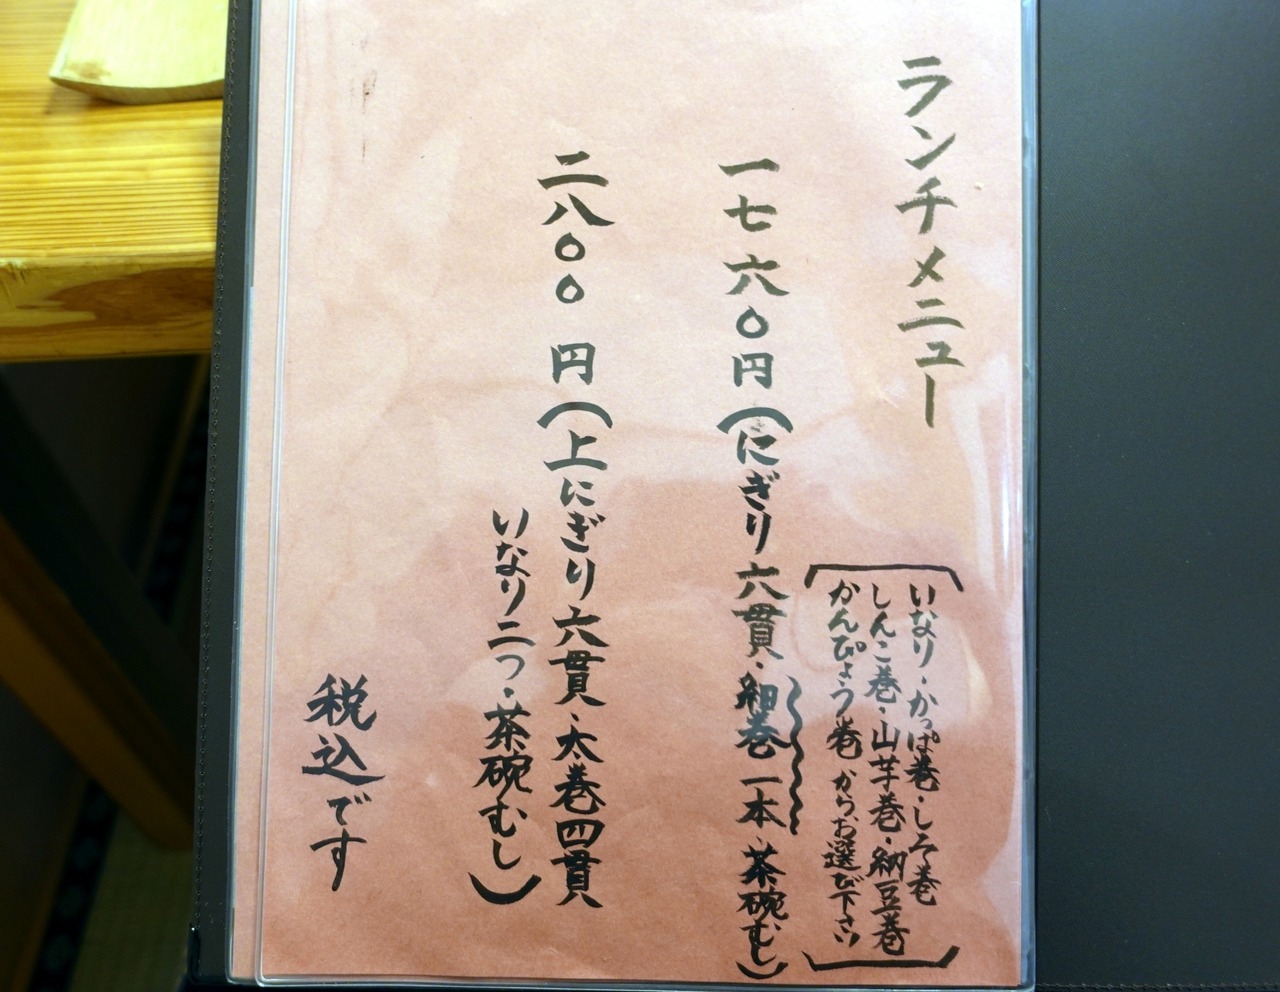 ランチメニュー
いなり・かっぱ巻・しそ巻
しんこ巻・山芋巻・納豆巻
かんぴょう巻からお選び下さい
一七六〇円(にぎり六貫・細巻一本・茶碗むし)
二八〇〇円(上にぎり六貫・太巻四貫
いなり二つ・茶碗むし)
税込です